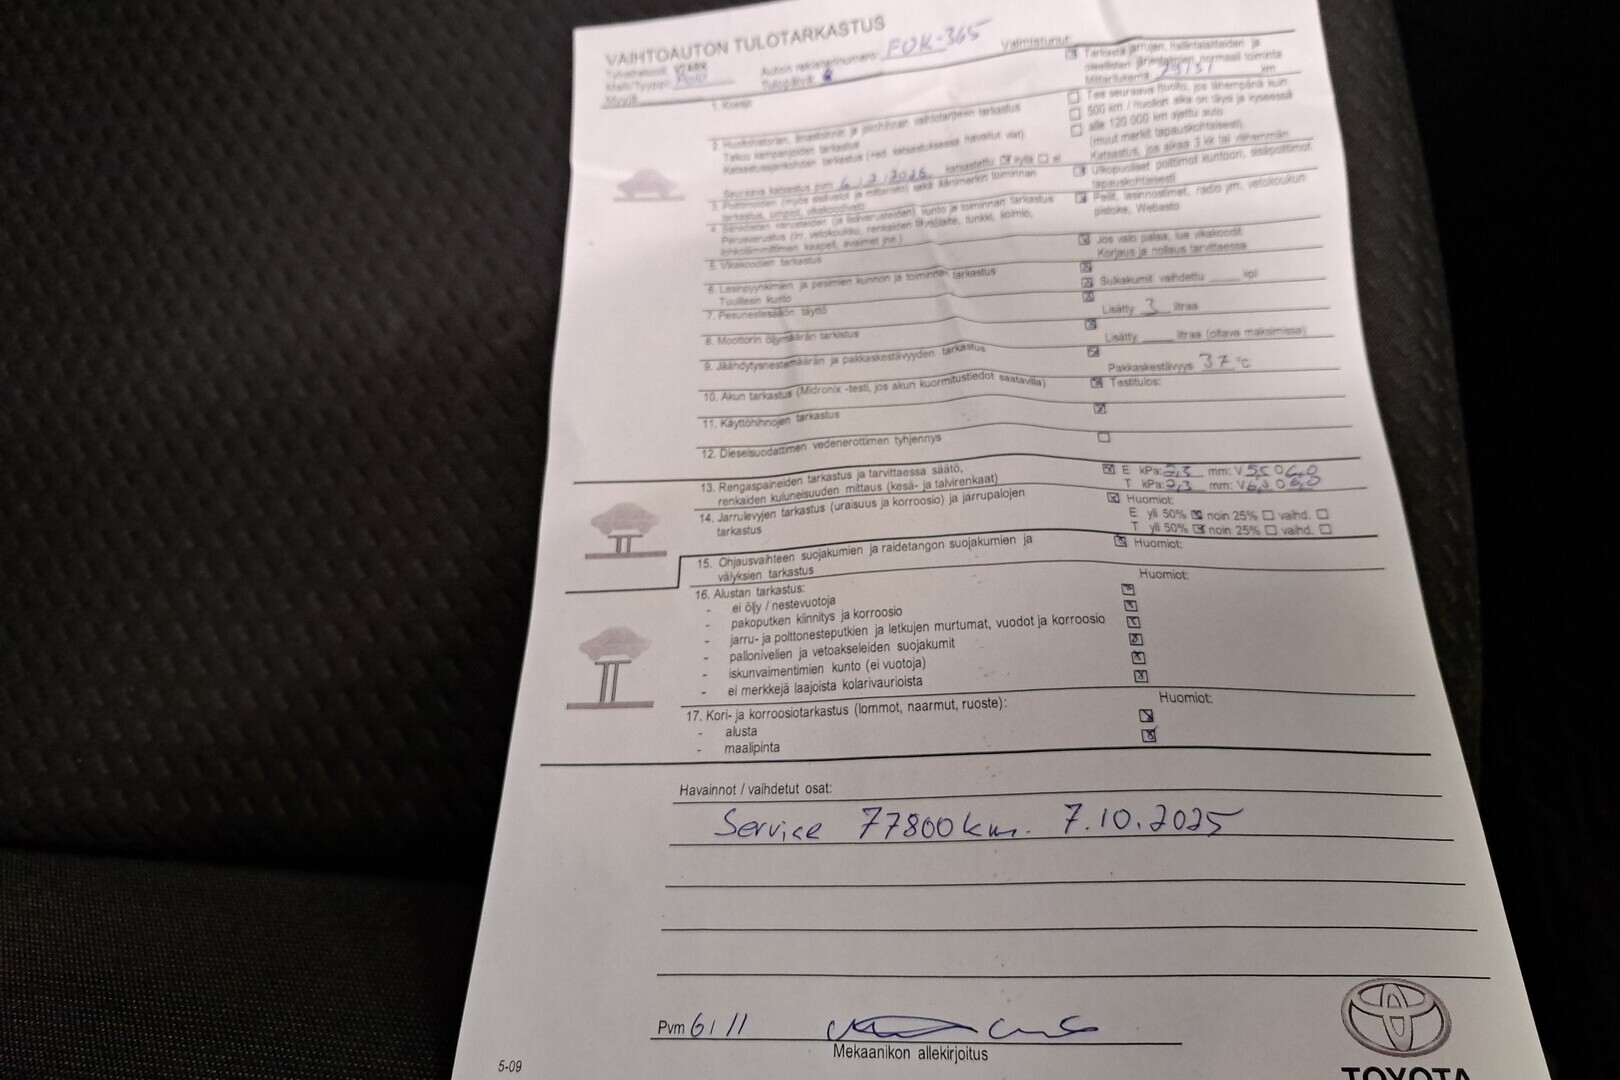 VAIHTOAUTON TULOTARKASTUS
Malli/Tyyppi:
Auton rekisterinumero: FOK-365
Tulopäivä:
Valmistunut:
1. Koeajo
Tarkasta jarrujen, hallintalaitteiden ja
oleellisten järjestelmien normaali toiminta
Mittarilukema km
2. Huoltohistorian, ilmastoinnin ja jakohihnan vaihtotarpeen tarkastus
Takuu kampanjoiden tarkastus
Tee seuraava huolto, jos lähempänä kuin
500 km / huollon aika on täysi ja kyseessä
alle 120 000 km ajettu auto
(muut merkit tapauskohtaisesti).
Katsastus, jos aikaa 3 kk tai vähemmän
Seuraava katsastus pvm katsastettu kyllä ei
Ulkopuoliset polttimot kuntoon, sisäpolttimot
tapauskohtaisesti
Peilit, lasinnostimet, radio ym. vetokoukun
pistoke, Webasto
5. Vikakoodien tarkastus
Jos valo palaa, lue vikakoodit
Korjaus ja nollaus tarvittaessa
6. Lasinpyyhkimien ja pesimien kunnon ja toiminnan tarkastus
Tuulilasin kunto
Sulkakumit vaihdettu ____ kpl
7. Pesunestesäiliön täyttö
Lisätty 3 litraa
8. Moottorin öljymäärän tarkastus
Lisätty ____ litraa (oltava maksimissa)
9. Jäähdytysnestemäärän ja pakkaskestävyyden tarkastus
Pakkaskestävyys 37 °C
10. Akun tarkastus (Midronix -testi, jos akun kuormitustiedot saatavilla)
Testitulos:
11. Käyttöhihnojen tarkastus
12. Dieselsuodattimen vedenerottimen tyhjennys
13. Rengaspaineiden tarkastus ja tarvittaessa säätö,
renkaiden kuluneisuuden mittaus (kesä- ja talvirenkaat)
E kPa: 2,5 mm: V 5,5 O 6,0
T kPa: 2,3 mm: V 6,0 O 6,0
14. Jarrulevyjen tarkastus (uraisuus ja korroosio) ja jarrupalojen
tarkastus
Huomiot:
E yli 50% noin 25% vaihd.
T yli 50% noin 25% vaihd.
15. Ohjausvaihteen suojakumien ja raidetangon suojakumien ja
välyksien tarkastus
Huomiot:
16. Alustan tarkastus:
Huomiot:
- ei öljy / nestevuotoja
- pakoputken kiinnitys ja korroosio
- jarru- ja polttonesteputkien ja letkujen murtumat, vuodot ja korroosio
- pallonivelien ja vetoakseleiden suojakumit
- iskunvaimentimien kunto (ei vuotoja)
- ei merkkejä laajoista kolarivaurioista
17. Kori- ja korroosiotarkastus (lommot, naarmut, ruoste):
Huomiot:
- alusta
- maalipinta
Havainnot / vaihdetut osat:
Service 77800 km. 7.10.2025
Pvm 6/11
Mekaanikon allekirjoitus
5-09
TOYOTA